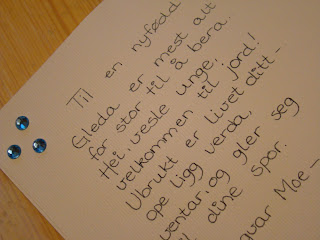 Til en nyfødd
Gleda er mest alt
for stor til å bera.
Hei, vesle unge,
velkommen til jord!
Ubrukt er livet ditt –
ope ligg verda,
ventar, og gler seg
dine spor.
Moe –